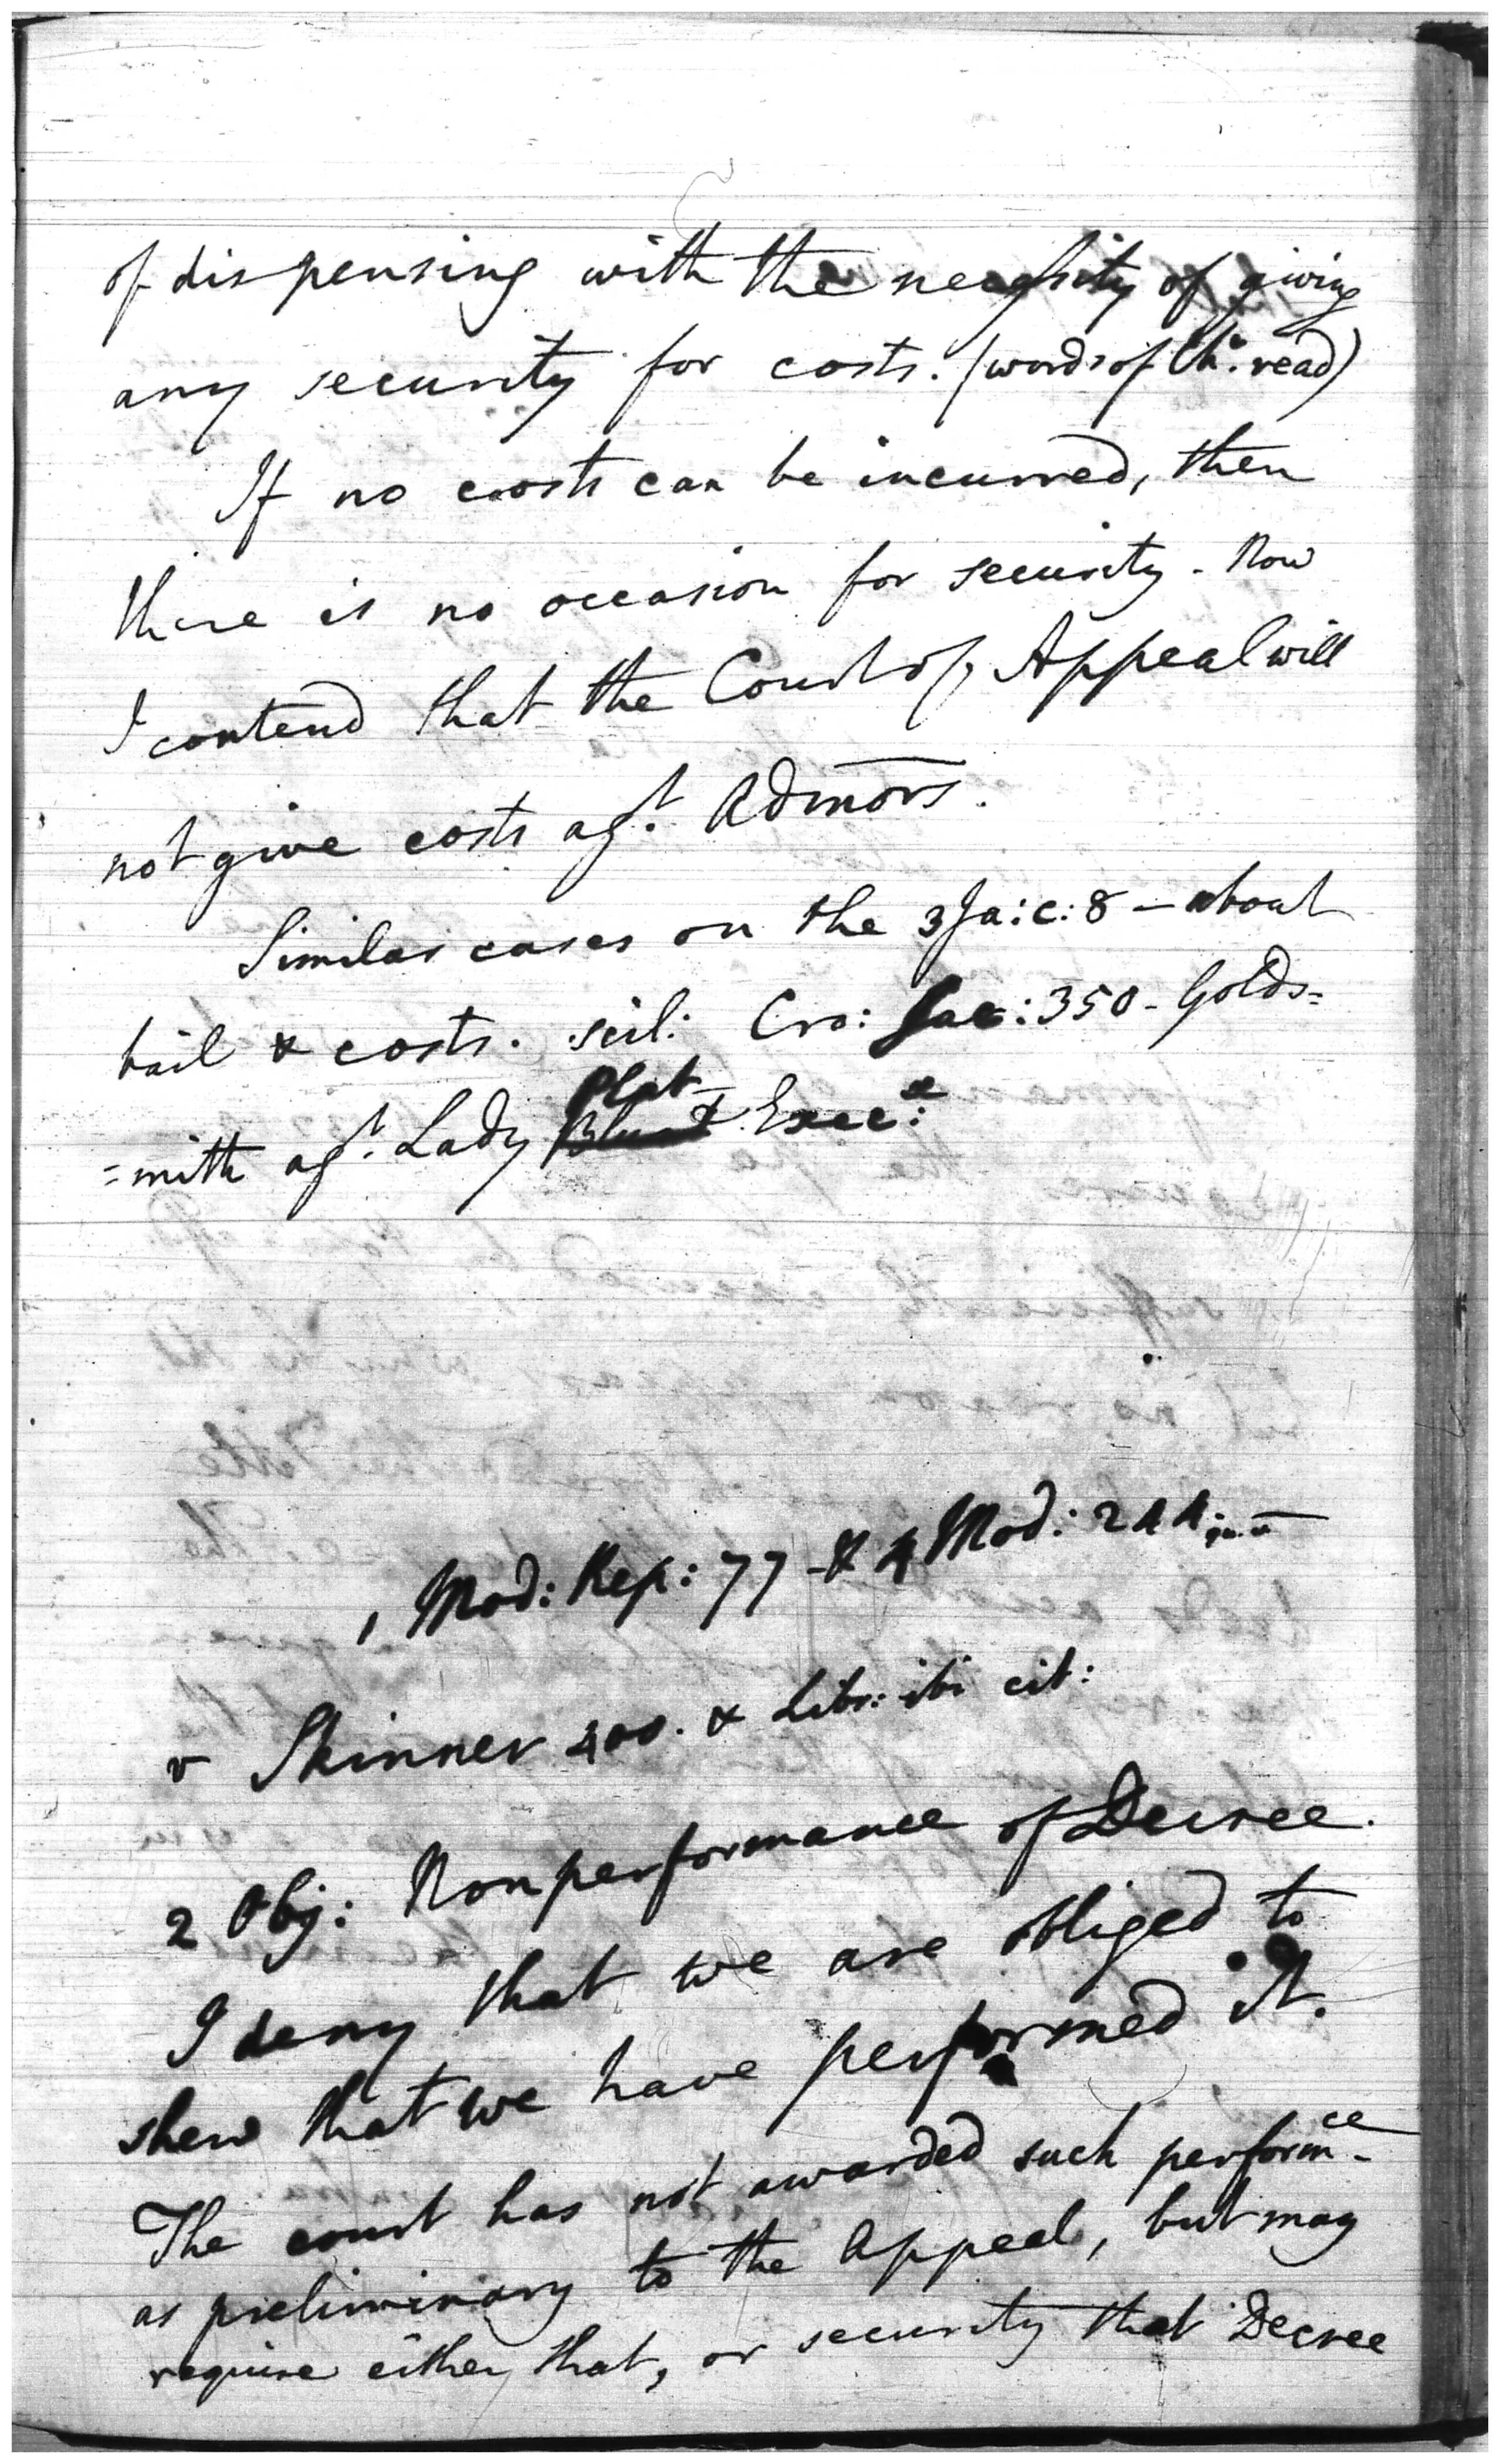 of dispensing with the necessity of giving
any security for costs. (words of Ch.r read)
If no costs can be incurred, then
there is no occasion for security. Now
I contend that the Court of Appeal will
not give costs ag.t Admors.
Similar cases on the 3 Ja: c: 8 — about
bail & costs. scil: Cro: Jac: 350 - Golds=
=mith ag.t Lady Plat Exec:x
1 Mod: Rep: 77 - & 4 Mod: 244:
v Skinner 400. & Libr: ibi cit:
2 Obj: Nonperformance of Decree.
I deny that we are obliged to
shew that we have performed it.
The court has not awarded such perform.ce
as preliminary to the Appeal, but may
require either that, or security that Decree